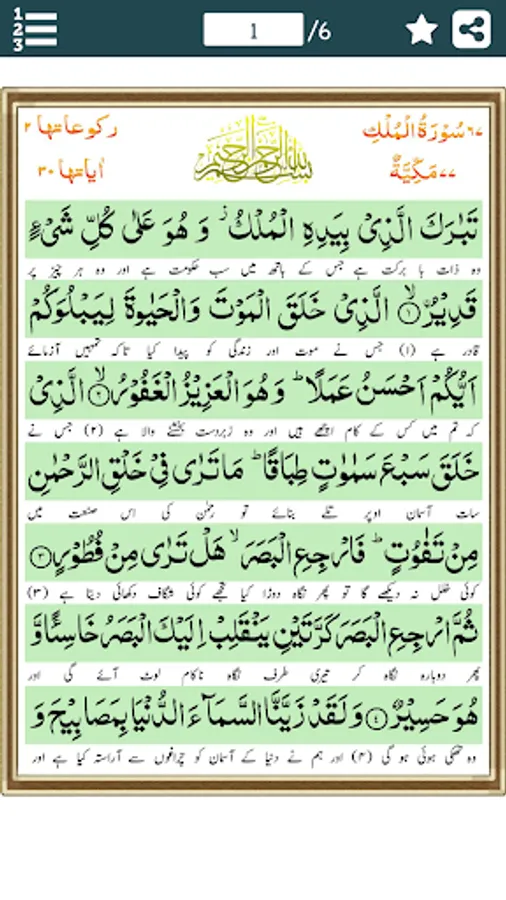 1
2
3
1 /6
٦٧ سُوۡرَةُ الۡمُلۡكِ
رکوعاتها ٢
بِسۡمِ اللهِ الرَّحۡمٰنِ الرَّحِيۡمِ
٧٧ مَكِّيَّةٌ
اٰیاتها ٣٠
تَبٰرَكَ الَّذِىۡ بِيَدِهِ الۡمُلۡكُ ز وَ هُوَ عَلٰى كُلِّ شَىۡءٍ
وہ ذات با برکت ہے جس کے ہاتھ میں سب حکومت ہے اور وہ ہر چیز پر
قَدِيۡرُۨ ۙ‏﴿۱﴾ الَّذِىۡ خَلَقَ الۡمَوۡتَ وَالۡحَيٰوةَ لِيَبۡلُوَكُمۡ
قادر ہے (۱) جس نے موت اور زندگی کو پیدا کیا تاکہ تمہیں آزمائے
اَيُّكُمۡ اَحۡسَنُ عَمَلًا ؕ وَ هُوَ الۡعَزِيۡزُ الۡغَفُوۡرُ ۙ‏﴿۲﴾ الَّذِىۡ
کہ تم میں کس کے کام اچھے ہیں اور وہ زبردست بخشنے والا ہے (۲) جس نے
خَلَقَ سَبۡعَ سَمٰوٰتٍ طِبَاقًا ؕ مَا تَرٰى فِىۡ خَلۡقِ الرَّحۡمٰنِ
سات آسمان اوپر تلے بنائے تو رحمٰن کی اس صنعت میں
مِنۡ تَفٰوُتٍ ؕ فَارۡجِعِ الۡبَصَرَ ۙ هَلۡ تَرٰى مِنۡ فُطُوۡرٍ‏﴿۳﴾
کوئی خلل نہ دیکھے گا تو پھر نگاہ دوڑا کیا تجھے کوئی شگاف دکھائی دیتا ہے (۳)
ثُمَّ ارۡجِعِ الۡبَصَرَ كَرَّتَيۡنِ يَنۡقَلِبۡ اِلَيۡكَ الۡبَصَرُ خَاسِئًا وَّ
پھر دوبارہ نگاہ کر تیری طرف نگاہ ناکام لوٹ آئے گی اور
هُوَ حَسِيۡرٌ‏﴿۴﴾ وَ لَـقَدۡ زَيَّنَّا السَّمَآءَ الدُّنۡيَا بِمَصَابِيۡحَ وَ
وہ تھکی ہوئی ہو گی (۴) اور ہم نے دنیا کے آسمان کو چراغوں سے آراستہ کیا ہے اور